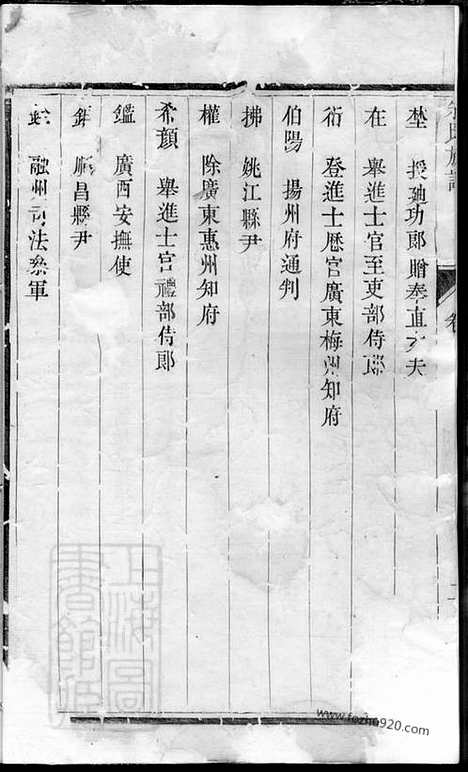 埜 授廸功郎贈奉直大夫
在 舉進士官至吏部侍郎
衍 登進士歷官廣東梅州知府
伯陽 揚州府通判
拂 姚江縣尹
權 除廣東惠州知府
希顏 舉進士官禮部侍郎
鑑 廣西安撫使
順昌縣尹
融州司法叅軍
氏族譜
卷
上海圖書館藏
www.fozhu920.com